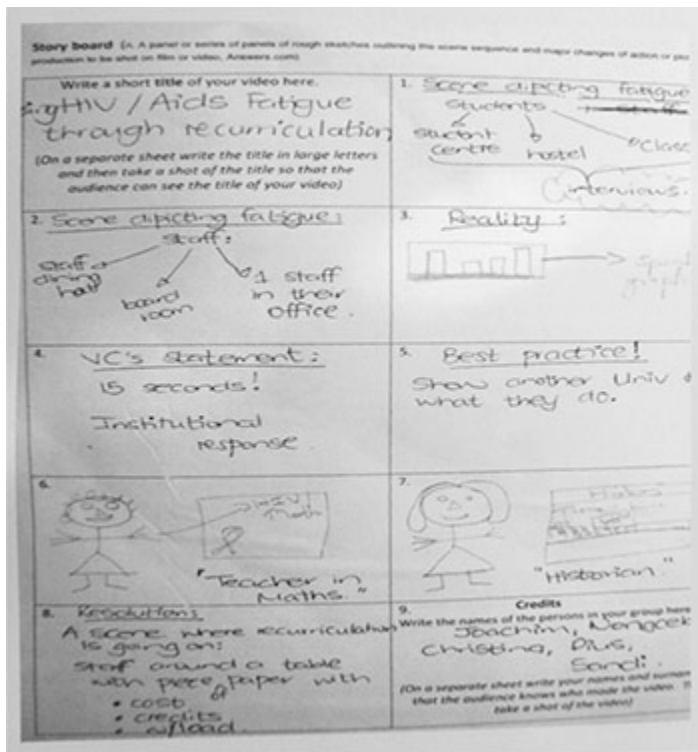 Story board (n. A panel or series of panels of rough sketches outlining the scene sequence and major changes of action or plot
production to be shot on film or video, Answers.com)
Write a short title of your video here.
HIV/Aids Fatigue
through recurriculation
(On a separate sheet write the title in large letters
and then take a shot of the title so that the
audience can see the title of your video)
1. Scene dipicting fatigue
Students
Student
centre
hostel
Class
interviews.
2. Scene dipicting fatigue:
Staff:
Staff
dining
hall
board
room
1 staff
in their
office.
3. Reality:
4. VC's statement:
15 seconds!
Institutional
response.
5. Best practice!
Show another Univ
what they do.
6.
HIV/
math
"Teacher in
Maths."
7.
"Historian."
8. Resolution:
A scene where recurriculation
is going on:
staff around a table
with piece of paper with
• cost
• credits
9. Credits
Write the names of the persons in your group here
Joachim,
Christina, Pius,
Sandi.
(On a separate sheet write your names and surnam
that the audience knows who made the video.
take a shot of the video)